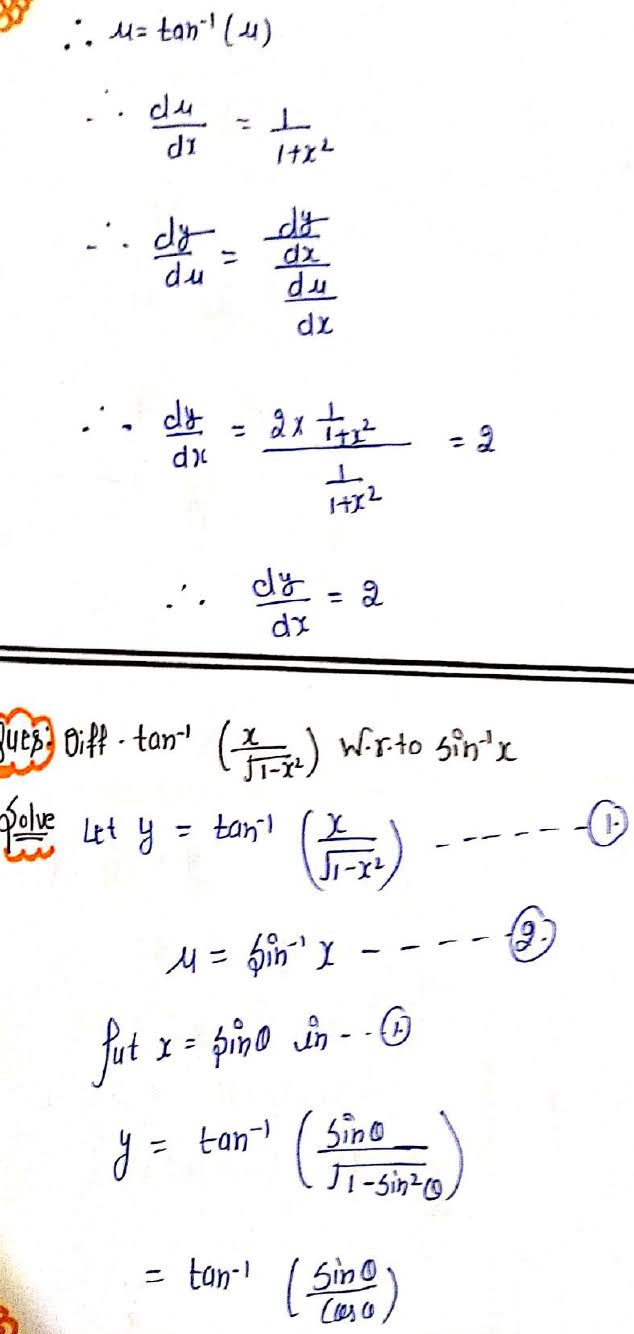 ∴ u = tan⁻¹(u)
∴ du/dx = 1/(1+x²)
∴ dy/du = (dy/dx)/(du/dx)
∴ dy/dx = (2 × 1/(1+x²))/(1/(1+x²)) = 2
∴ dy/dx = 2
Ques: Diff. tan⁻¹ (x/√(1-x²)) W.r.to sin⁻¹x
Solve Let y = tan⁻¹ (x/√(1-x²)) ------ ①
u = sin⁻¹ x ---- ②
Put x = sinθ in -- ①
y = tan⁻¹ (sinθ/√(1-sin²θ))
= tan⁻¹ (sinθ/cosθ)